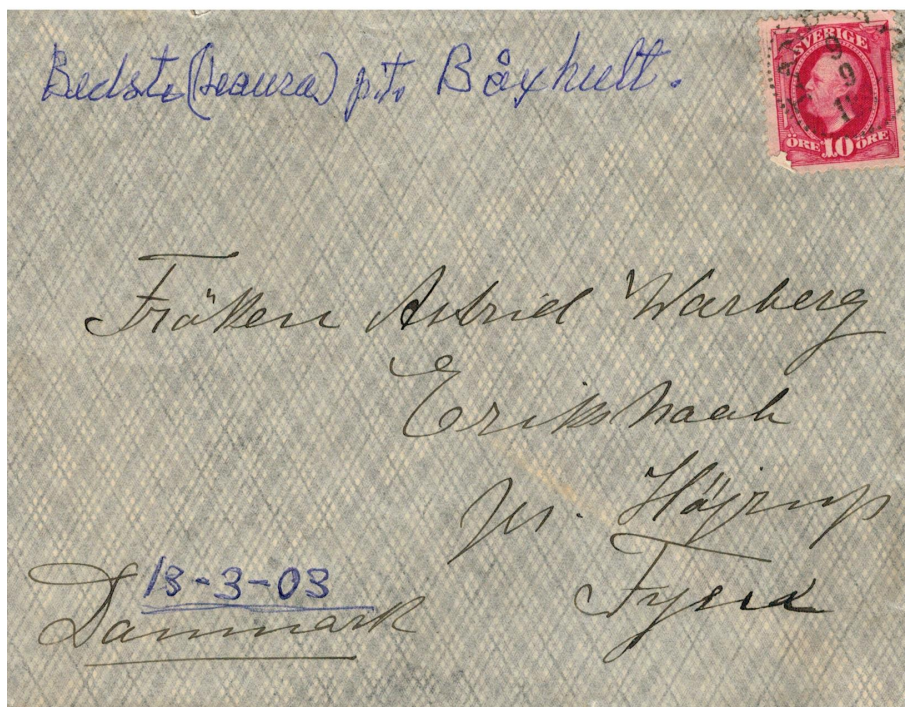 Bedste (Laura) p.t. Båxhult.
SVERIGE
ÖRE 10 ÖRE
Fröken Astrid Warberg
Erikshaab
pr. Höjrup
Fyen
13-3-03
Danmark